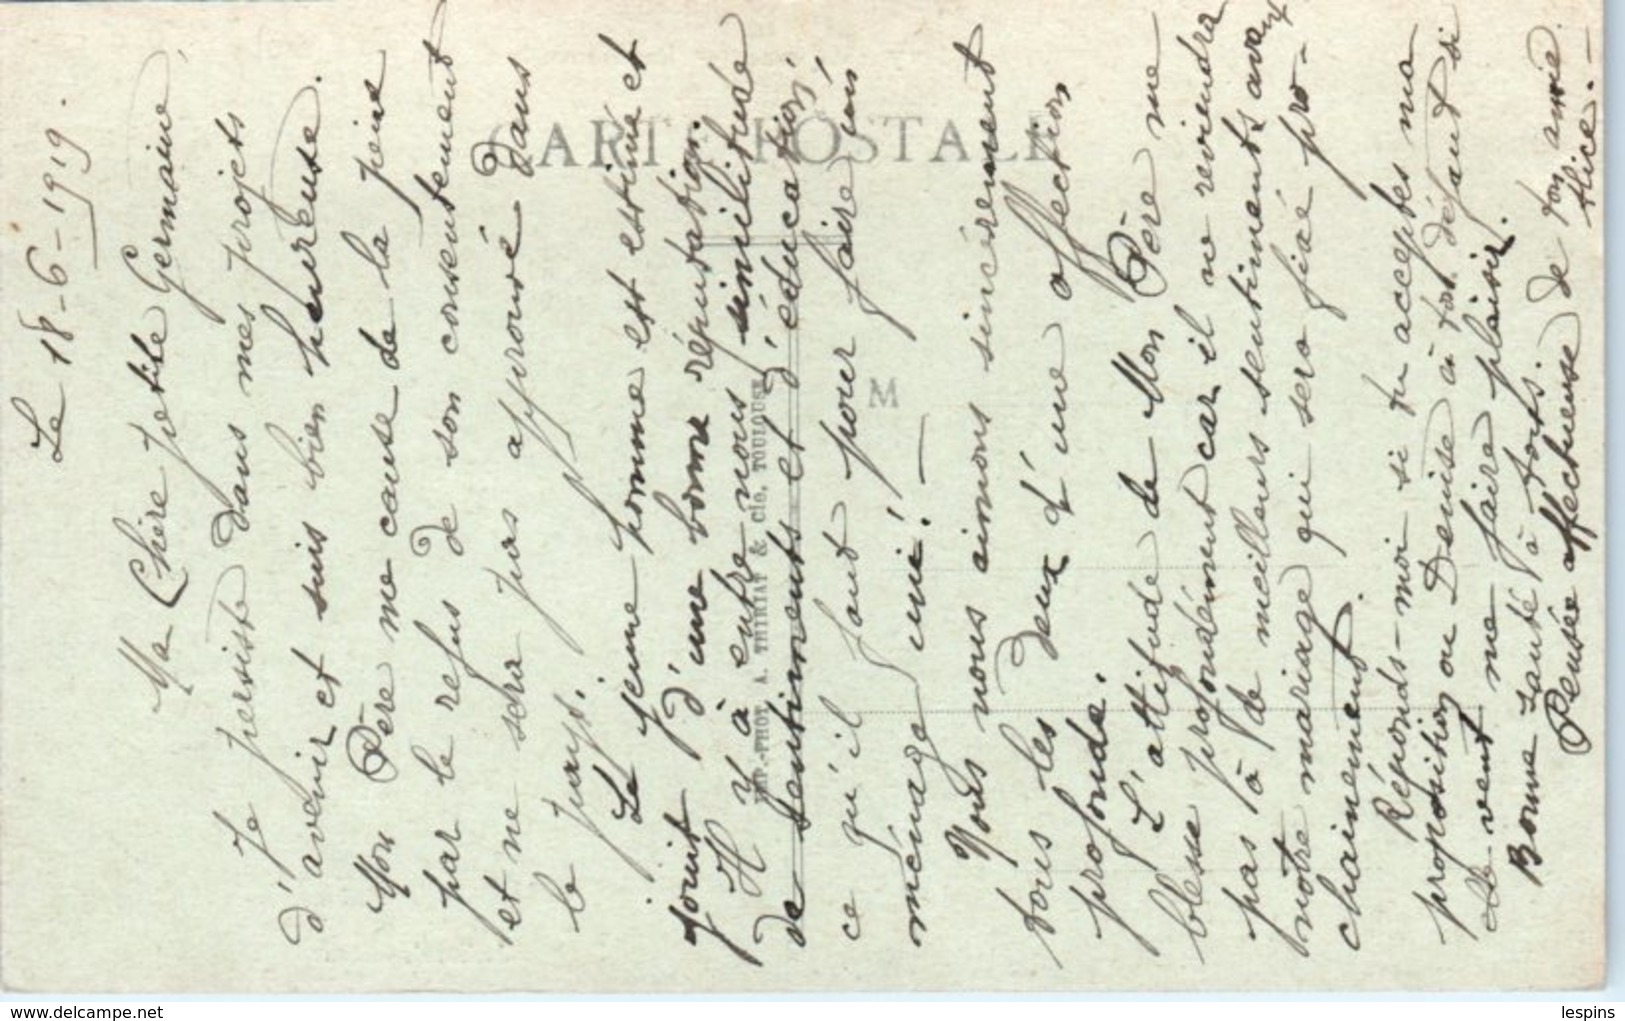 Le 18-6-1919.
Ma Chère petite Germaine,
Je persiste dans mes projets
d'avenir et suis bien heureuse.
Mon Père me cause de la peine
par le refus de son consentement
et ne sera pas approuvé dans
le pays.
Le jeune homme est estimé et
jouit d'une bonne réputation.
Il y a entre nous similitude
de sentiments et d'éducation,
ce qu'il faut pour faire un
ménage uni! —
Nous nous aimons sincèrement
tous les deux d'une affection
profonde.
L'attitude de Mon Père me
blesse profondément car il ne reviendra
pas à de meilleurs sentiments avant
notre mariage qui sera fixé pro-
chainement.
Réponds-moi si tu acceptes ma
proposition ou Denise à ton défaut si
elle veut me faire plaisir.
Bonne santé à tous.
Pensée affectueuse de ton amie
Alice. —
CARTE POSTALE
IMP.-PHOT. A. THIRIAT & Cie. TOULOUSE
M
lespins